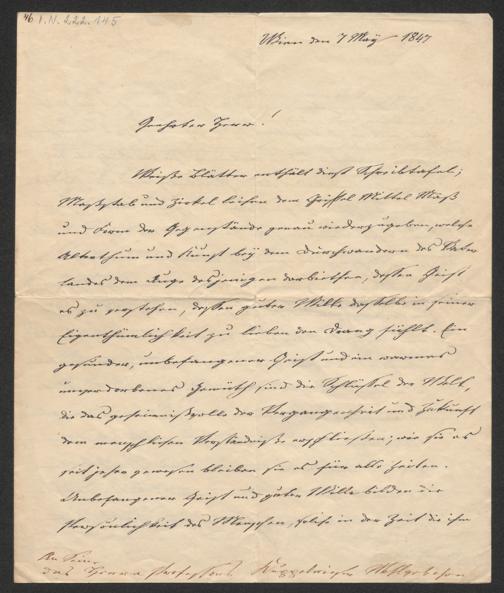 46 I.N. 222.145
Wien den 7 May 1847
Geehrter Herr!
Weiße Blätter enthält diese Schreibtafel;
Maßstab und Zirkel leihen dem Griffel Mittel Maß
und Form der Gegenstände genau wiederzugeben, welche
Alterthum und Kunst bey dem Durchwandern des Vater
landes dem Auge desjenigen darbiethen, dessen Geist
es zu verstehen, dessen guter Wille dasselbe in seiner
Eigenthümlichkeit zu lieben den Drang fühlt. Ein
gesunder, unbefangener Geist und ein warmes
unverdorbenes Gemüth sind die Schlüssel der Welt,
die das geheimnißvolle der Vergangenheit und Zukunft
dem menschlichen Verständniße erschließen; wie sie es
seit jeher gewesen bleiben sie es für alle Zeiten.
Unbefangener Geist und guter Wille bilden die
Persönlichkeit des Menschen, in der Zeit die ihm
An Seine
des Herrn Professors Kuppelwieser Wohlgeboren